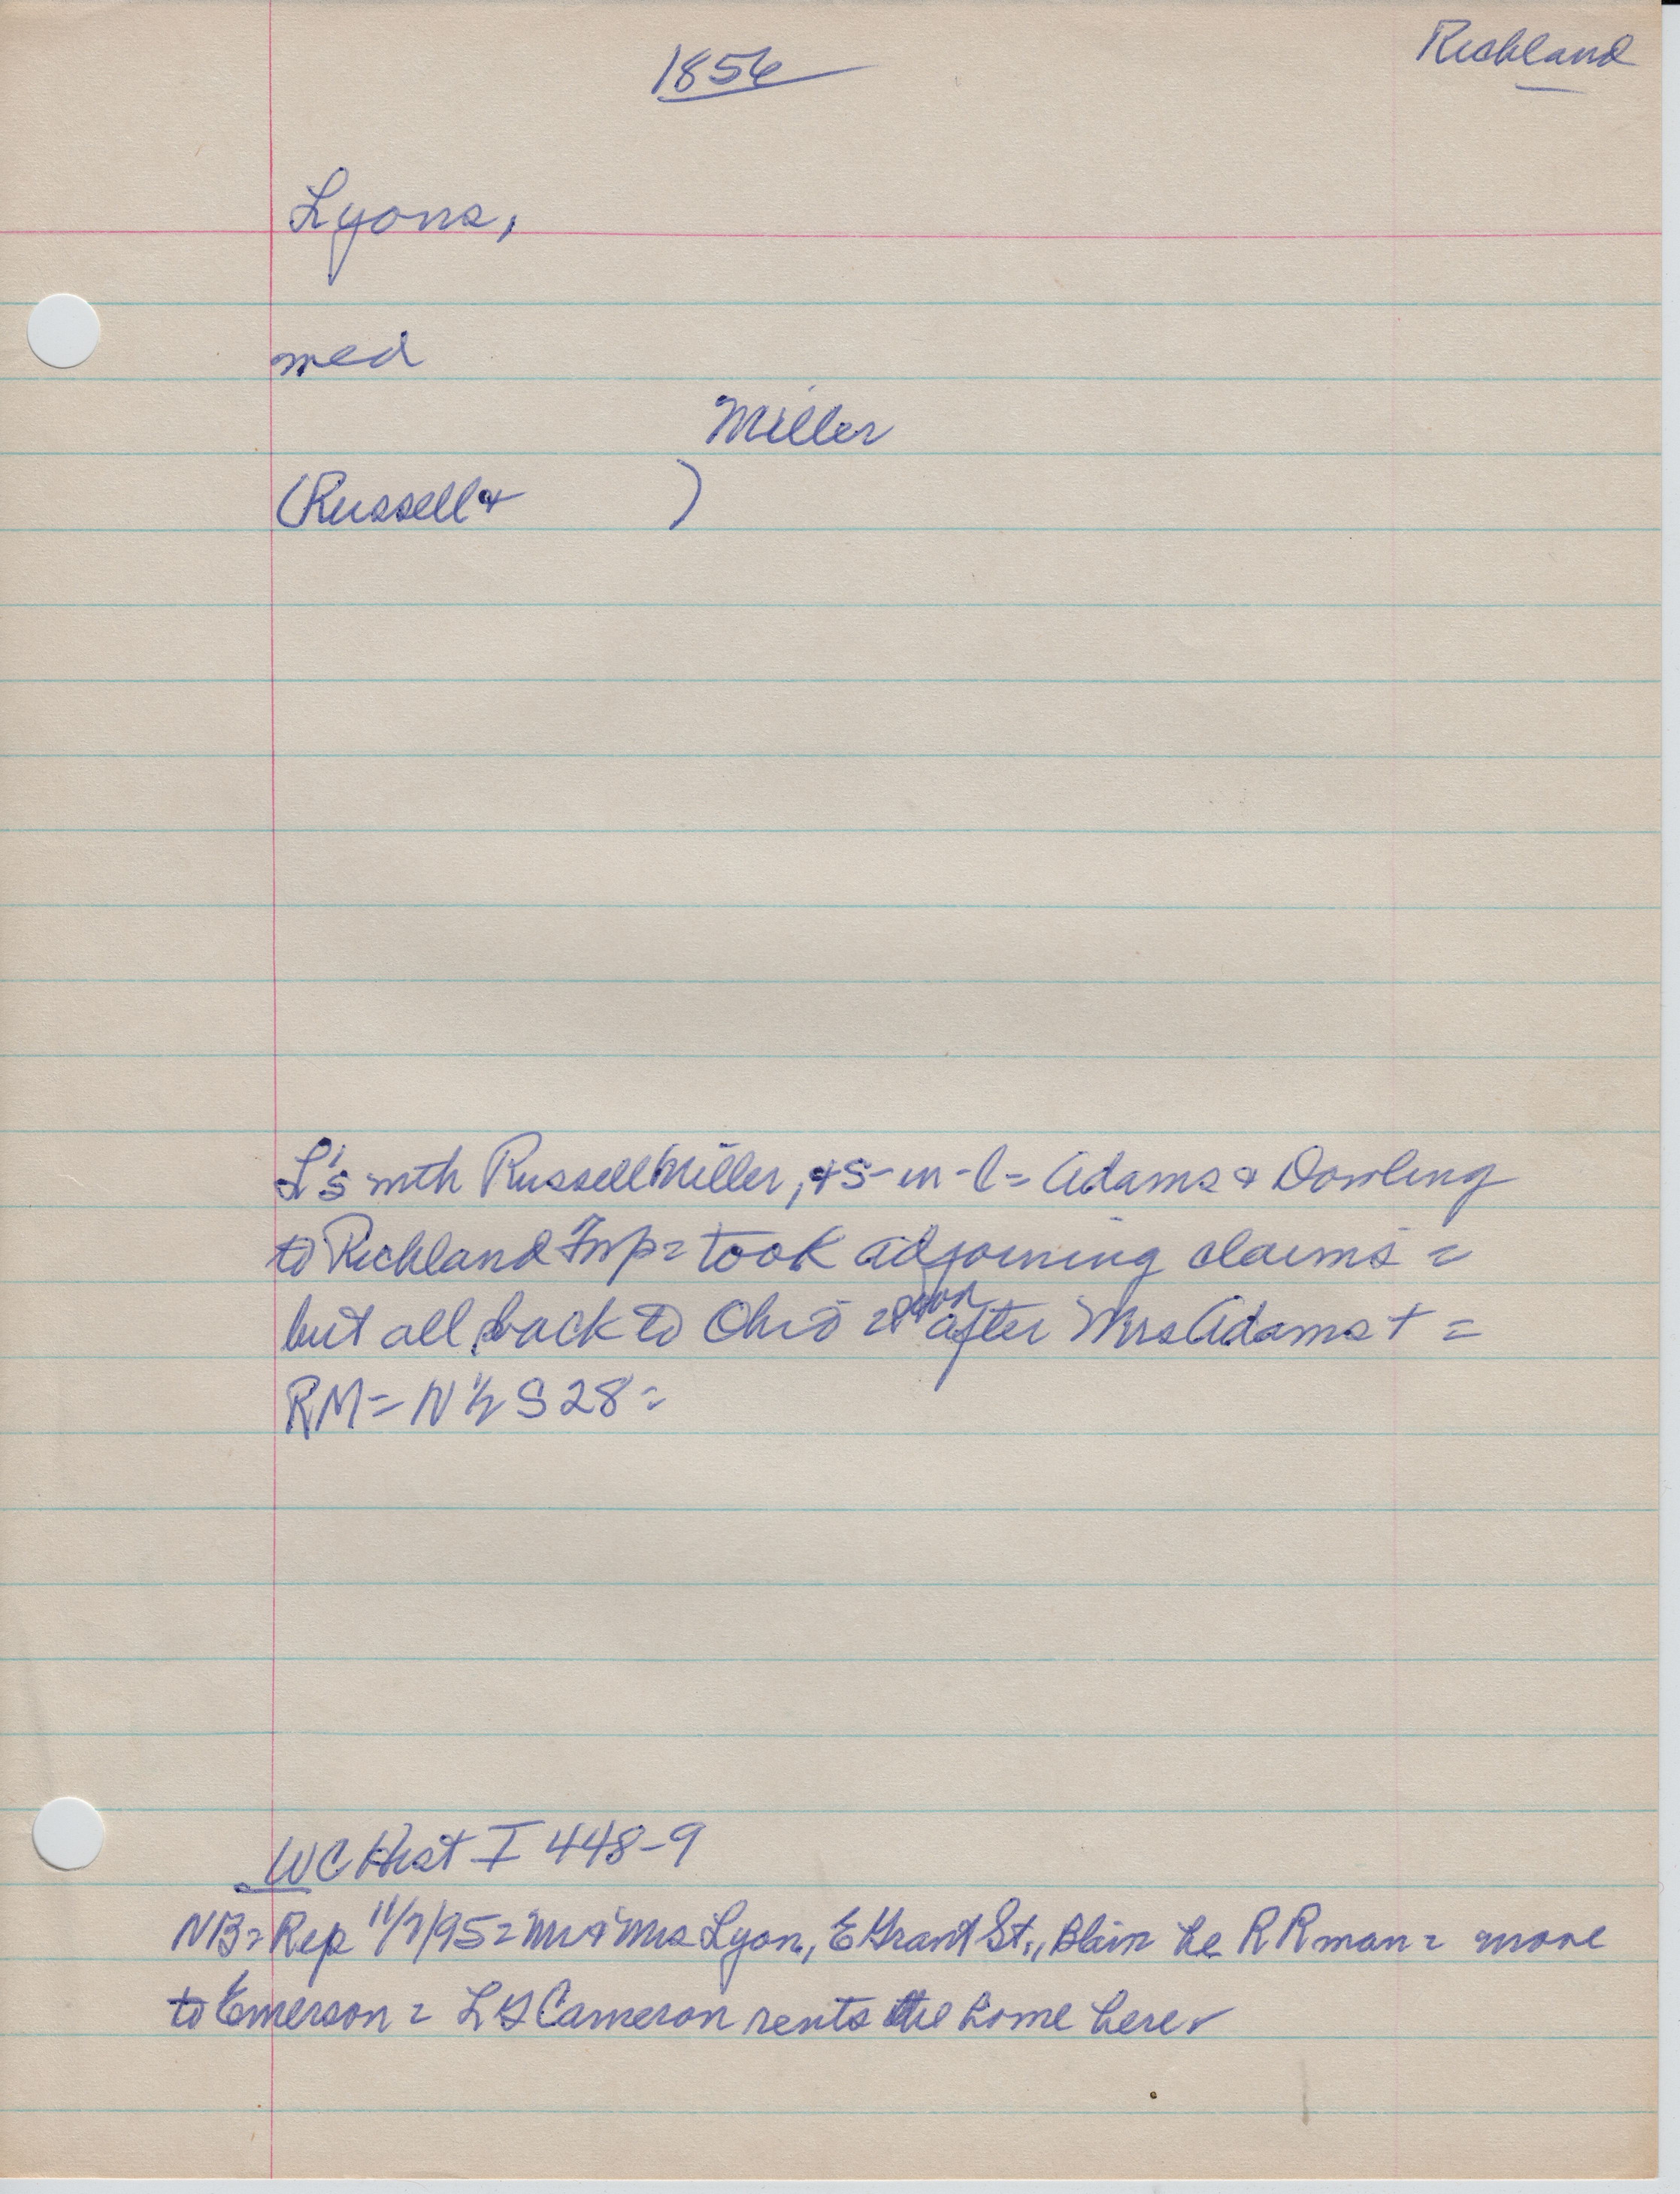 1856
Richland
Lyons,
med
Miller
(Russell & )
L's with Russell Miller, & S-in-l = Adams & Dowling
to Richland Twp = took adjoining claims =
but all back to Ohio = soon after Mrs Adams + =
RM = N ½ S 28 =
WC Hist I 448-9
NB = Rep 11/7/95 = Mr & Mrs Lyon, E Grant St., Blair he R R man = move
to Emerson = L Cameron rents the home here